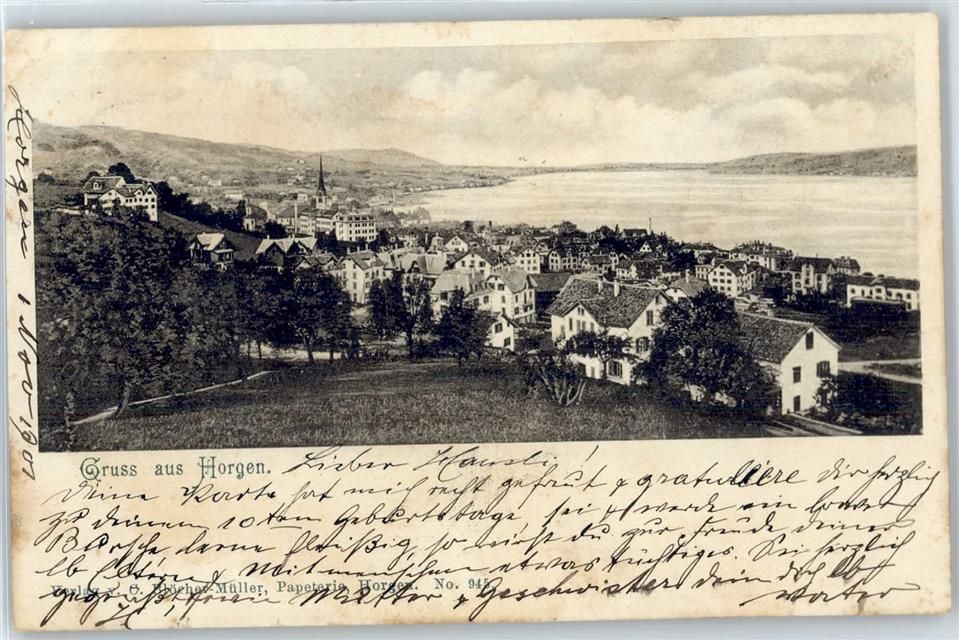 Horgen 1 Nov 1901
Gruss aus Horgen. Lieber Hansli!
Deine Karte hat mich recht gefreut & gratuliere dir herzlich
zu deinem 10ten Geburtstage sei & werde ein braver
Bursche lerne fleißig, so wirst du zur Freude deiner
lb Eltern & Mitmenschen etwas tüchtiges. Sei herzlich
Verlag v. C. Blöcher-Müller, Papeterie, Horgen. No. 945.
gegrüßt, Mutter & Geschwister dein dich lb